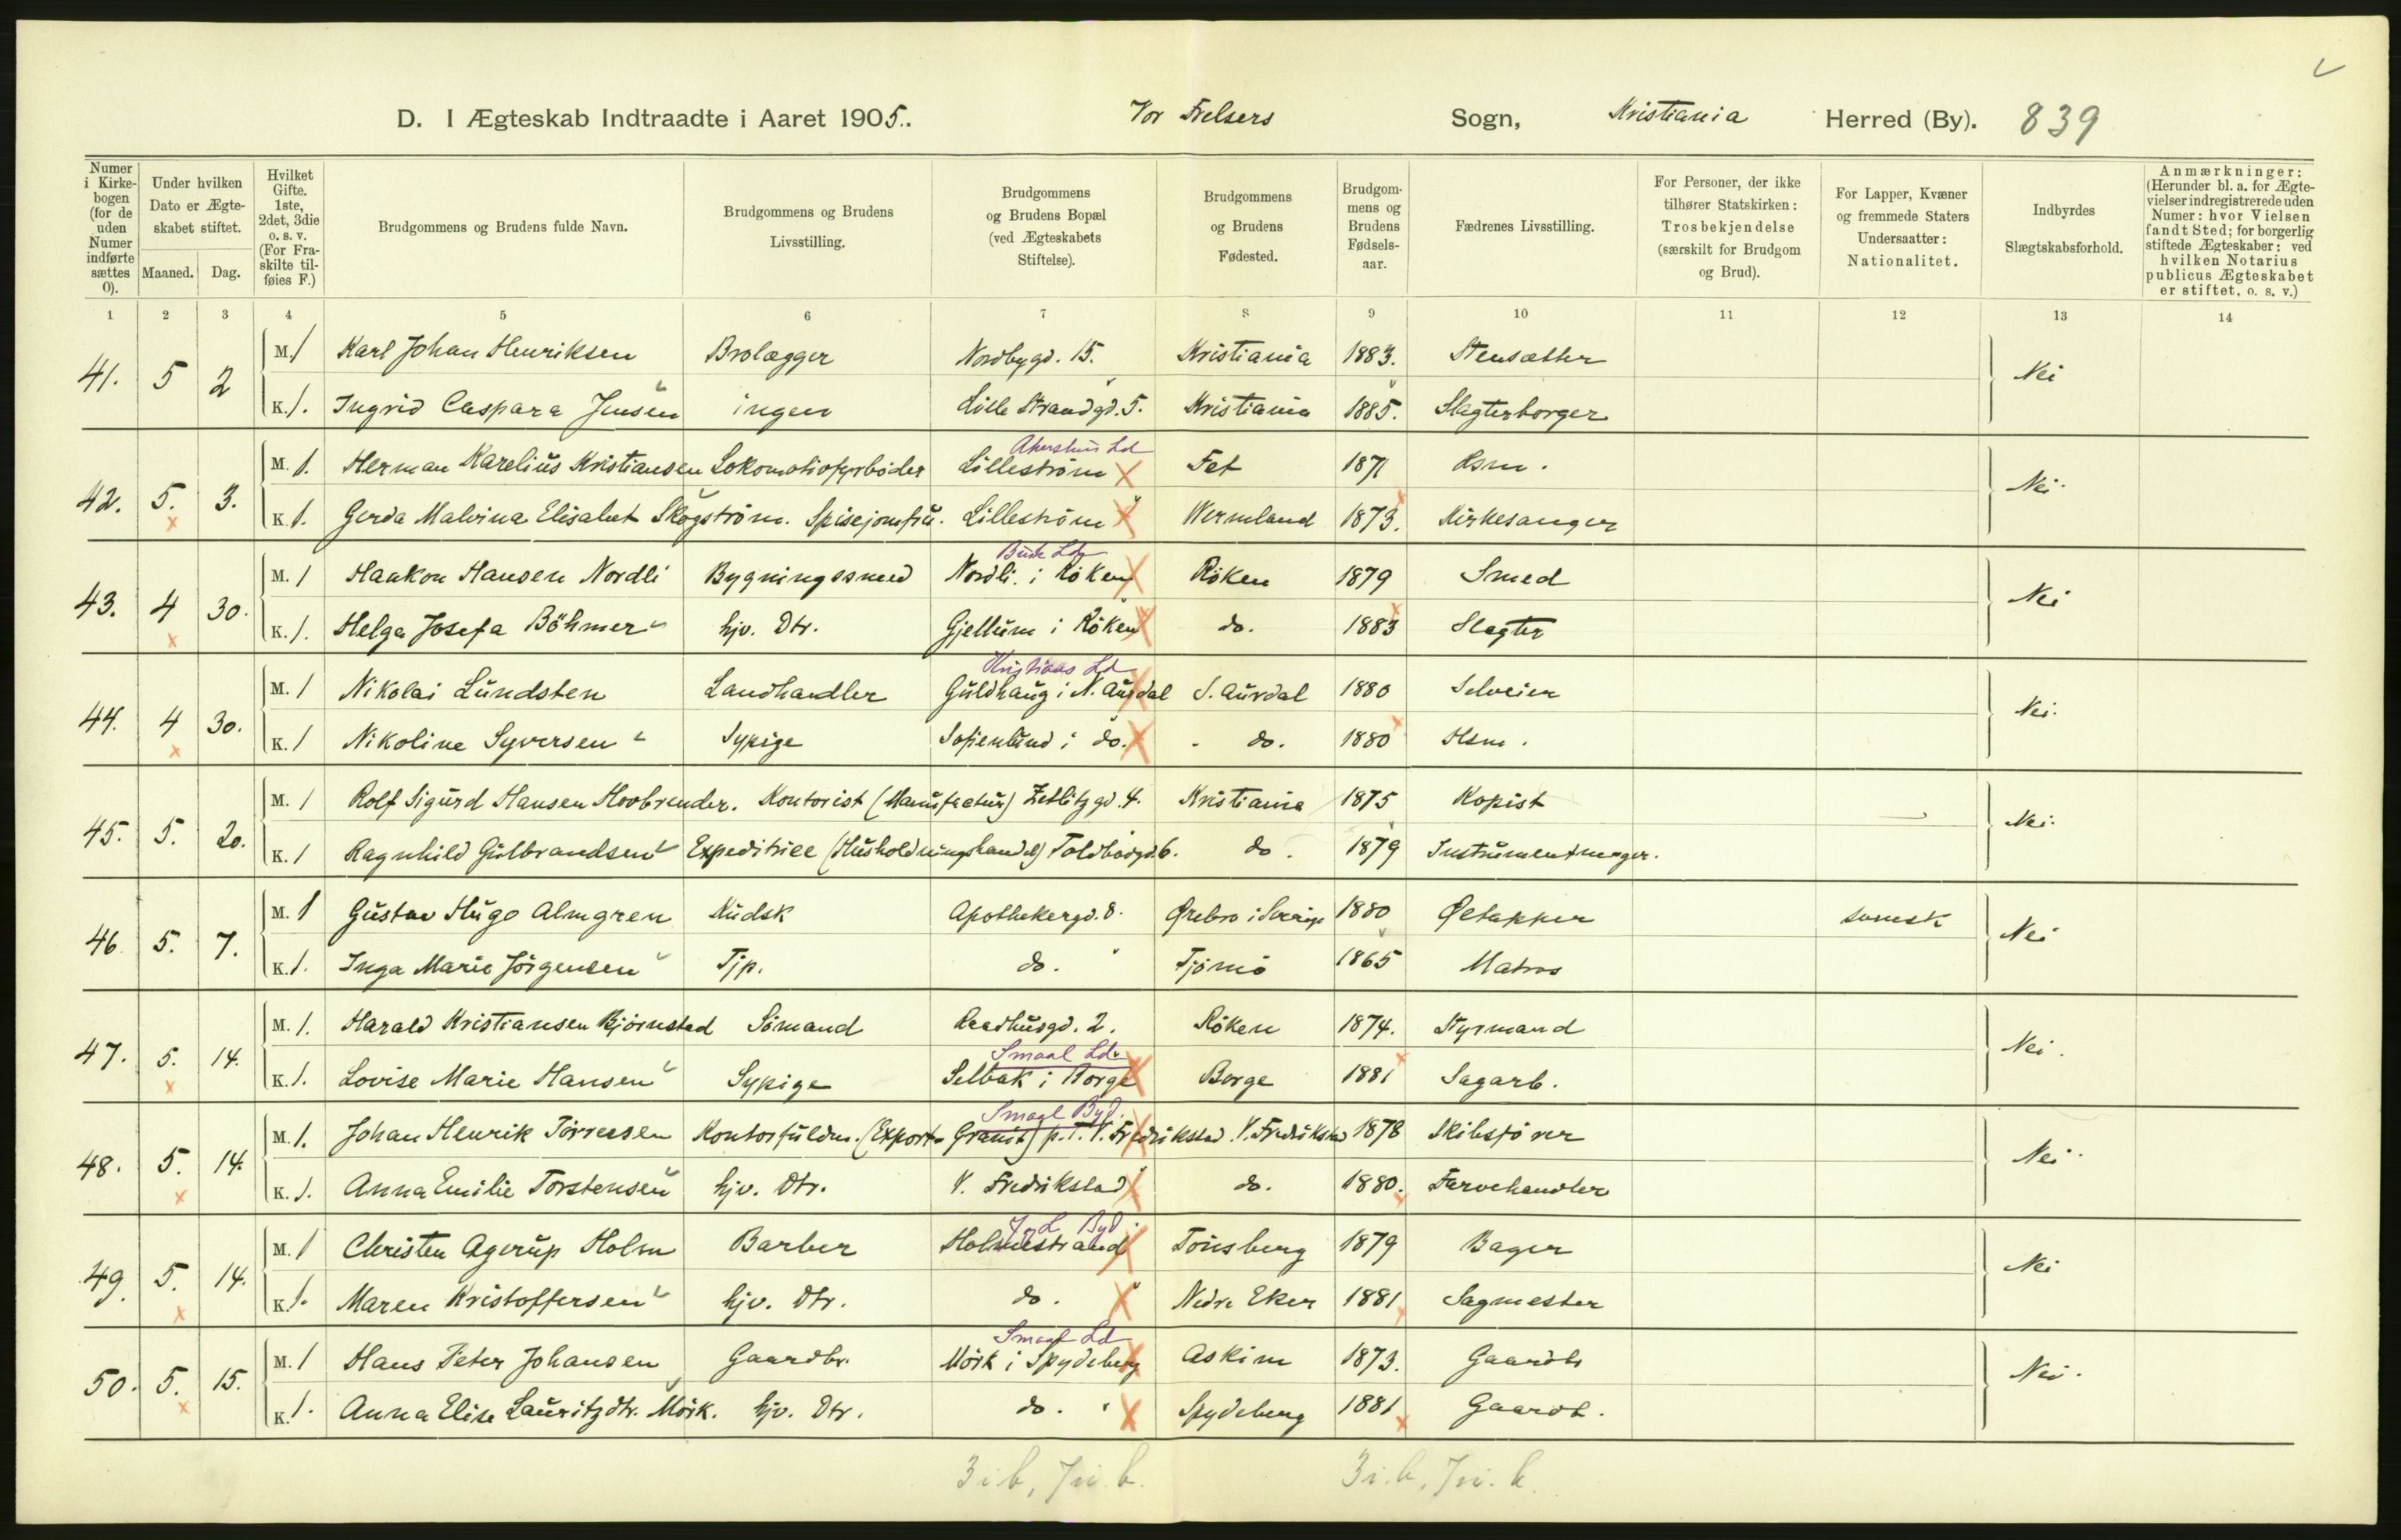 D. I Ægteskab Indtraadte i Aaret 1905. Vor Frelsers Sogn, Kristiania Herred (By). 839
Numer i Kirkebogen (for de uden Numer indførte sættes 0).
Under hvilken Dato er Ægteskabet stiftet. Maaned. Dag.
Hvilket Gifte. 1ste, 2det, 3die o. s. v. (For Fraskilte tilføies F.)
Brudgommens og Brudens fulde Navn.
Brudgommens og Brudens Livsstilling.
Brudgommens og Brudens Bopæl (ved Ægteskabets Stiftelse).
Brudgommens og Brudens Fødested.
Brudgommens og Brudens Fødselsaar.
Fædrenes Livsstilling.
For Personer, der ikke tilhører Statskirken: Trosbekjendelse (særskilt for Brudgom og Brud).
For Lapper, Kvæner og fremmede Staters Undersaatter: Nationalitet.
Indbyrdes Slægtskabsforhold.
Anmærkninger: (Herunder bl. a. for Ægtevielser indregistrerede uden Numer: hvor Vielsen fandt Sted; for borgerlig stiftede Ægteskaber: ved hvilken Notarius publicus Ægteskabet er stiftet, o. s. v.)
1 2 3 4 5 6 7 8 9 10 11 12 13 14
41. 5 2 M. 1 Karl Johan Henriksen Brolægger Nordbygd. 15. Kristiania 1883. Stensætter Nei
K. 1. Ingrid Caspara Jensen ingen Lille Strandgd. 5. Kristiania 1885. Slagterborger
Akershus Ld
42. 5. 3. M. 1. Herman Karelius Kristiansen Lokomotivfyrbøder Lilleström Fet 1871 Hsm. Nei.
K. 1. Gerda Malvina Elisabet Skogström. Spisejomfru. Lilleström Wermland 1873. Kirkesanger
Busk Ld
43. 4 30. M. 1 Haakon Hansen Nordli Bygningssmed Nordli i Röken Röken 1879 Smed Nei
K. 1. Helga Josefa Böhmer hjv. Dtr. Gjellum i Röken do. 1883 Slagter
Kristians Ld
44. 4 30. M. 1 Nikolai Lundsten Landhandler Guldhaug i N. Aurdal S. Aurdal 1880 Selveier Nei.
K. 1 Nikoline Syversen Sypige Sofienlund i do. do. 1880 Hsm.
45. 5. 20. M. 1 Rolf Sigurd Hansen Hovbrender. Kontorist (Manufactur) Zetlitzgd. 4. Kristiania 1875 Kopist Nei.
K. 1 Ragnhild Gulbrandsen Expeditrice (Husholdningshandel) Toldbodgd. 6. do. 1879 Instrumentmager.
46 5. 7. M. 1 Gustav Hugo Almgren Kudsk Apothekergd. 8. Ørebro i Sverige 1880 Øltapper svensk Nei
K. 1. Inga Marie Jörgensen Tjp. do. Tjömö 1865 Matros
47. 5. 14. M. 1. Harald Kristiansen Björnstad Sömand Raadhusgd. 2. Röken 1874. Styrmand Nei.
Smaal Ld.
K. 1. Lovise Marie Hansen Sypige Selbak i Borge Borge 1881 Sagarb.
Smaal Byd.
48. 5. 14. M. 1. Johan Henrik Törresen Kontorfuldm. (Export-Granit) p. T. V. Fredrikstad V. Fredrikstad 1878 Skibsförer Nei.
K. 1. Anna Emilie Torstensen hjv. Dtr. V. Fredrikstad do. 1880. Farvehandler
J. L. Byd.
49. 5. 14. M. 1 Christen Agerup Holm Barber Holmestrand Tönsberg 1879 Bager Nei
K. 1. Maren Kristoffersen hjv. Dtr. do. Nedre Eker 1881 Sagmester
Smaal Ld
50. 5. 15. M. 1 Hans Peter Johansen Gaardbr. Mörk i Spydeberg Askim 1873. Gaardb Nei.
K. 1. Anna Elise Lauritzdtr. Mörk. hjv. Dtr. do. Spydeberg 1881 Gaardb.
3 i. b, 7 i. b. 3 i. b, 7 i. b.